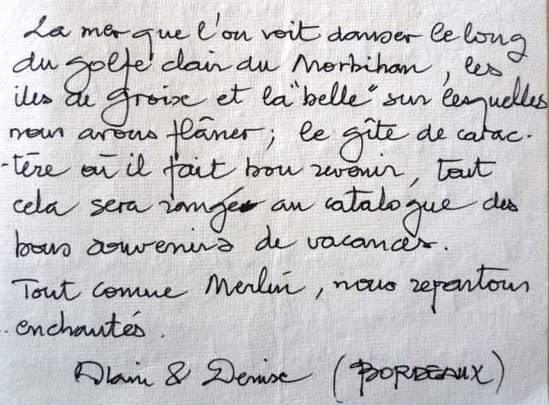 La mer que l'on voit danser le long
du golfe clair du Morbihan, les
îles de Groix et la "belle" sur lesquelles
nous avons flâner; le gîte de carac-
-tère où il fait bon revenir, tout
cela sera rangé au catalogue des
bons souvenirs de vacances.
Tout comme Merlin, nous repartons
enchantés.
Alain & Denise (BORDEAUX)